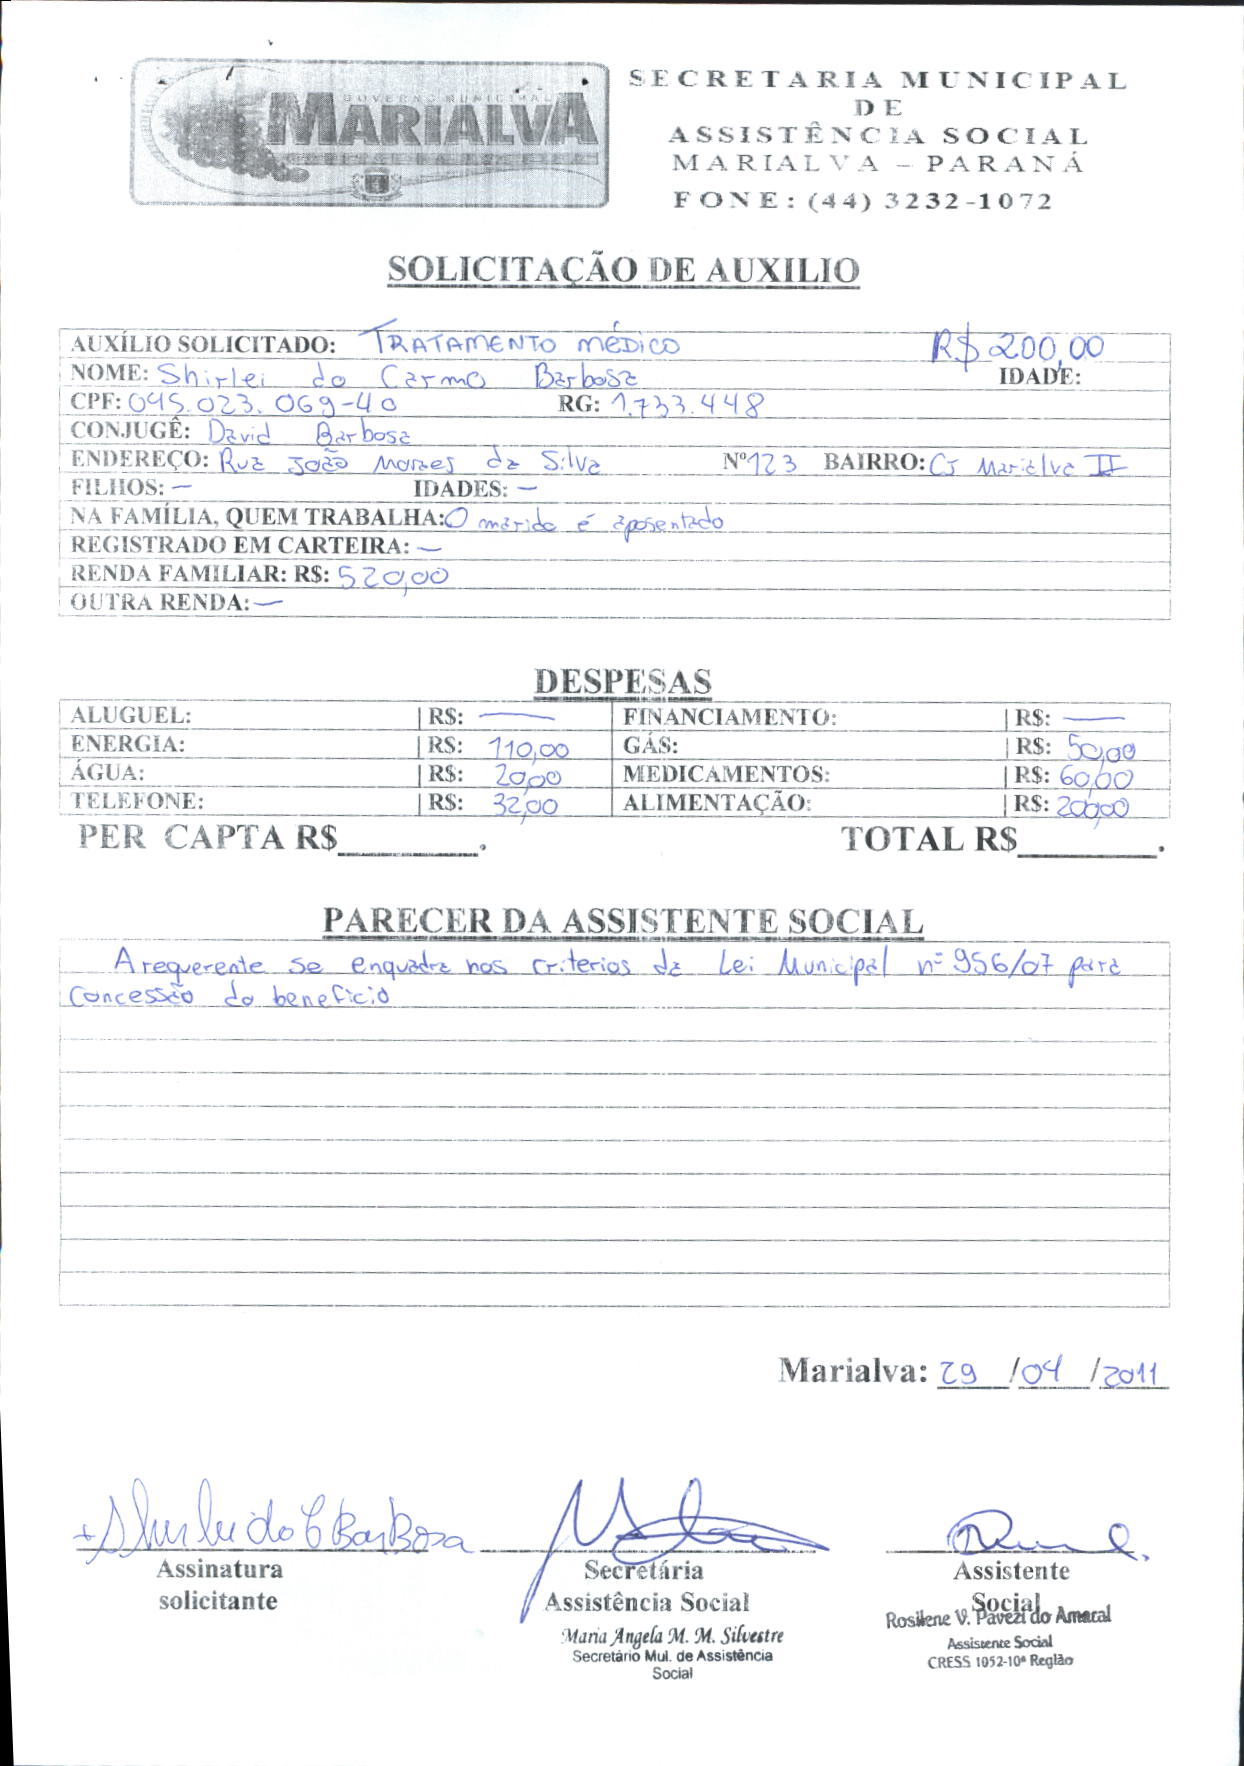 GOVERNO MUNICIPAL
MARIALVA
SECRETARIA MUNICIPAL
DE
ASSISTÊNCIA SOCIAL
MARIALVA – PARANÁ
FONE: (44) 3232-1072
SOLICITAÇÃO DE AUXILIO
AUXÍLIO SOLICITADO: TRATAMENTO MÉDICO R$ 200,00
NOME: Shirlei do Carmo Barbosa IDADE:
CPF: 045.023.069-40 RG: 1.733.448
CONJUGÊ: David Barbosa
ENDEREÇO: Rua João Moraes da Silva Nº 123 BAIRRO: Cj Marialva II
FILHOS: – IDADES: –
NA FAMÍLIA, QUEM TRABALHA: O marido é aposentado
REGISTRADO EM CARTEIRA: –
RENDA FAMILIAR: R$: 520,00
OUTRA RENDA: –
DESPESAS
ALUGUEL: | R$: — FINANCIAMENTO: | R$: —
ENERGIA: | R$: 110,00 GÁS: | R$: 50,00
ÁGUA: | R$: 20,00 MEDICAMENTOS: | R$: 60,00
TELEFONE: | R$: 32,00 ALIMENTAÇÃO: | R$: 200,00
PER CAPTA R$________. TOTAL R$________.
PARECER DA ASSISTENTE SOCIAL
A requerente se enquadra nos criterios da Lei Municipal nº 956/07 para
concessão do beneficio
Marialva: 29 /04 /2011
Shirlei do C Barbosa
Assinatura
solicitante
Secretária
Assistência Social
Maria Angela M. M. Silvestre
Secretário Mul. de Assistência
Social
Assistente
Social
Rosilene V. Pavezi do Amaral
Assistente Social
CRESS 1052-10ª Região